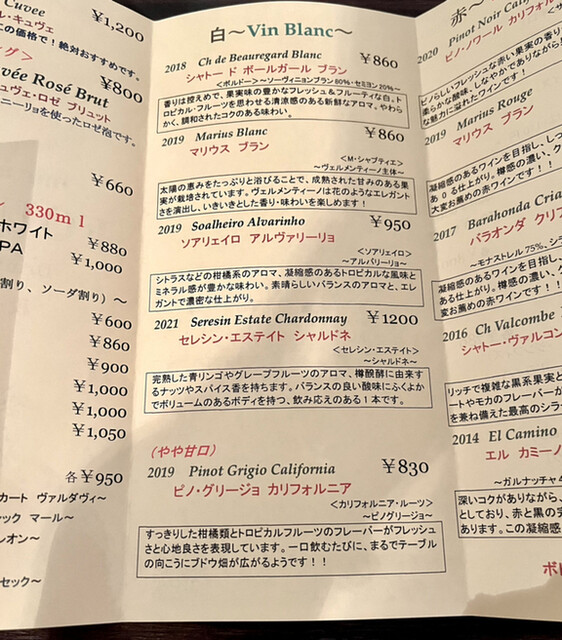 Cuvee ¥1,200
ュ・キュヴェ
この価格で！絶対おすすめです。
グ〉
vée Rosé Brut ¥800
ュヴェ・ロゼ ブリュット
ニーリョを使ったロゼ泡です。
¥660
330ml
ホワイト ¥880
PA ¥1,000
割り、ソーダ割り）～
¥600
¥860
¥900
¥1,000
¥1,000
¥1,050
各¥950
カート ヴァルダヴィ～
ック マール～
レオン～
セック～
白～Vin Blanc～
2018 Ch de Beauregard Blanc ¥860
シャトー ド ボールガール ブラン
<ボルドー>～ソーヴィニョンブラン 80%・セミヨン 20%～
香りは控えめで、果実味の豊かなフレッシュ＆フルーティな白。トロピカル・フルーツを思わせる清涼感のある新鮮なアロマ、やわらかく、調和されたコクのある味わい。
2019 Marius Blanc ¥860
マリウス ブラン
<M・シャプティエ>
～ヴェルメンティーノ主体～
太陽の恵みをたっぷりと浴びることで、成熟された甘みのある果実が栽培されています。ヴェルメンティーノは花のようなエレガントさを演出し、いきいきとした香り・味わいを楽しめます！
2019 Soalheiro Alvarinho ¥950
ソアリェイロ アルヴァリーリョ
<ソアリェイロ>
～アルバリーリョ～
シトラスなどの柑橘系のアロマ、凝縮感のあるトロピカルな風味とミネラル感が豊かな味わい。素晴らしいバランスのアロマと、エレガントで濃密な仕上がり。
2021 Seresin Estate Chardonnay ¥1200
セレシン・エステイト シャルドネ
<セレシン・エステイト>
～シャルドネ～
完熟した青リンゴやグレープフルーツのアロマ、樽醗酵に由来するナッツやスパイス香を持ちます。バランスの良い酸味にふくよかでボリュームのあるボディを持つ、飲み応えのある１本です。
（やや甘口）
2019 Pinot Grigio California ¥830
ピノ・グリージョ カリフォルニア
<カリフォルニア・ルーツ>
～ピノグリージョ～
すっきりした柑橘類とトロピカルフルーツのフレーバーがフレッシュさと心地良さを表現しています。一口飲むたびに、まるでテーブルの向こうにブドウ畑が広がるようです！！
赤～
2020 Pinot Noir Calif
ピノ・ノワール カリフォル
ピノらしいフレッシュな赤い果実の香り
柔らかな酸味、なめやかでありながら
な魅力に溢れたワインです！
2019 Marius Rouge
マリウス ブラン
凝縮感のあるワインを目指し、しっ
ある仕上がり。樽感の濃い、ク
大変お薦めの赤ワインです！！
2017 Barahonda Cria
バラオンダ クリフ
～モナストレル 75%、シラ
凝縮感のあるワインを目指し、
ある仕上がり。樽感の濃い、ク
変お薦めの赤ワインです！！
2016 Ch Valcombe
シャトー・ヴァルコン
リッチで複雑な黒系果実と
ートやモカのフレーバーが
を兼ね備えた最高のシラ
2014 El Camino
エル カミーノ
～ガルナッチャ 4
深いコクがありながら、
としており、赤と黒の完
あります。この凝縮感
ボト